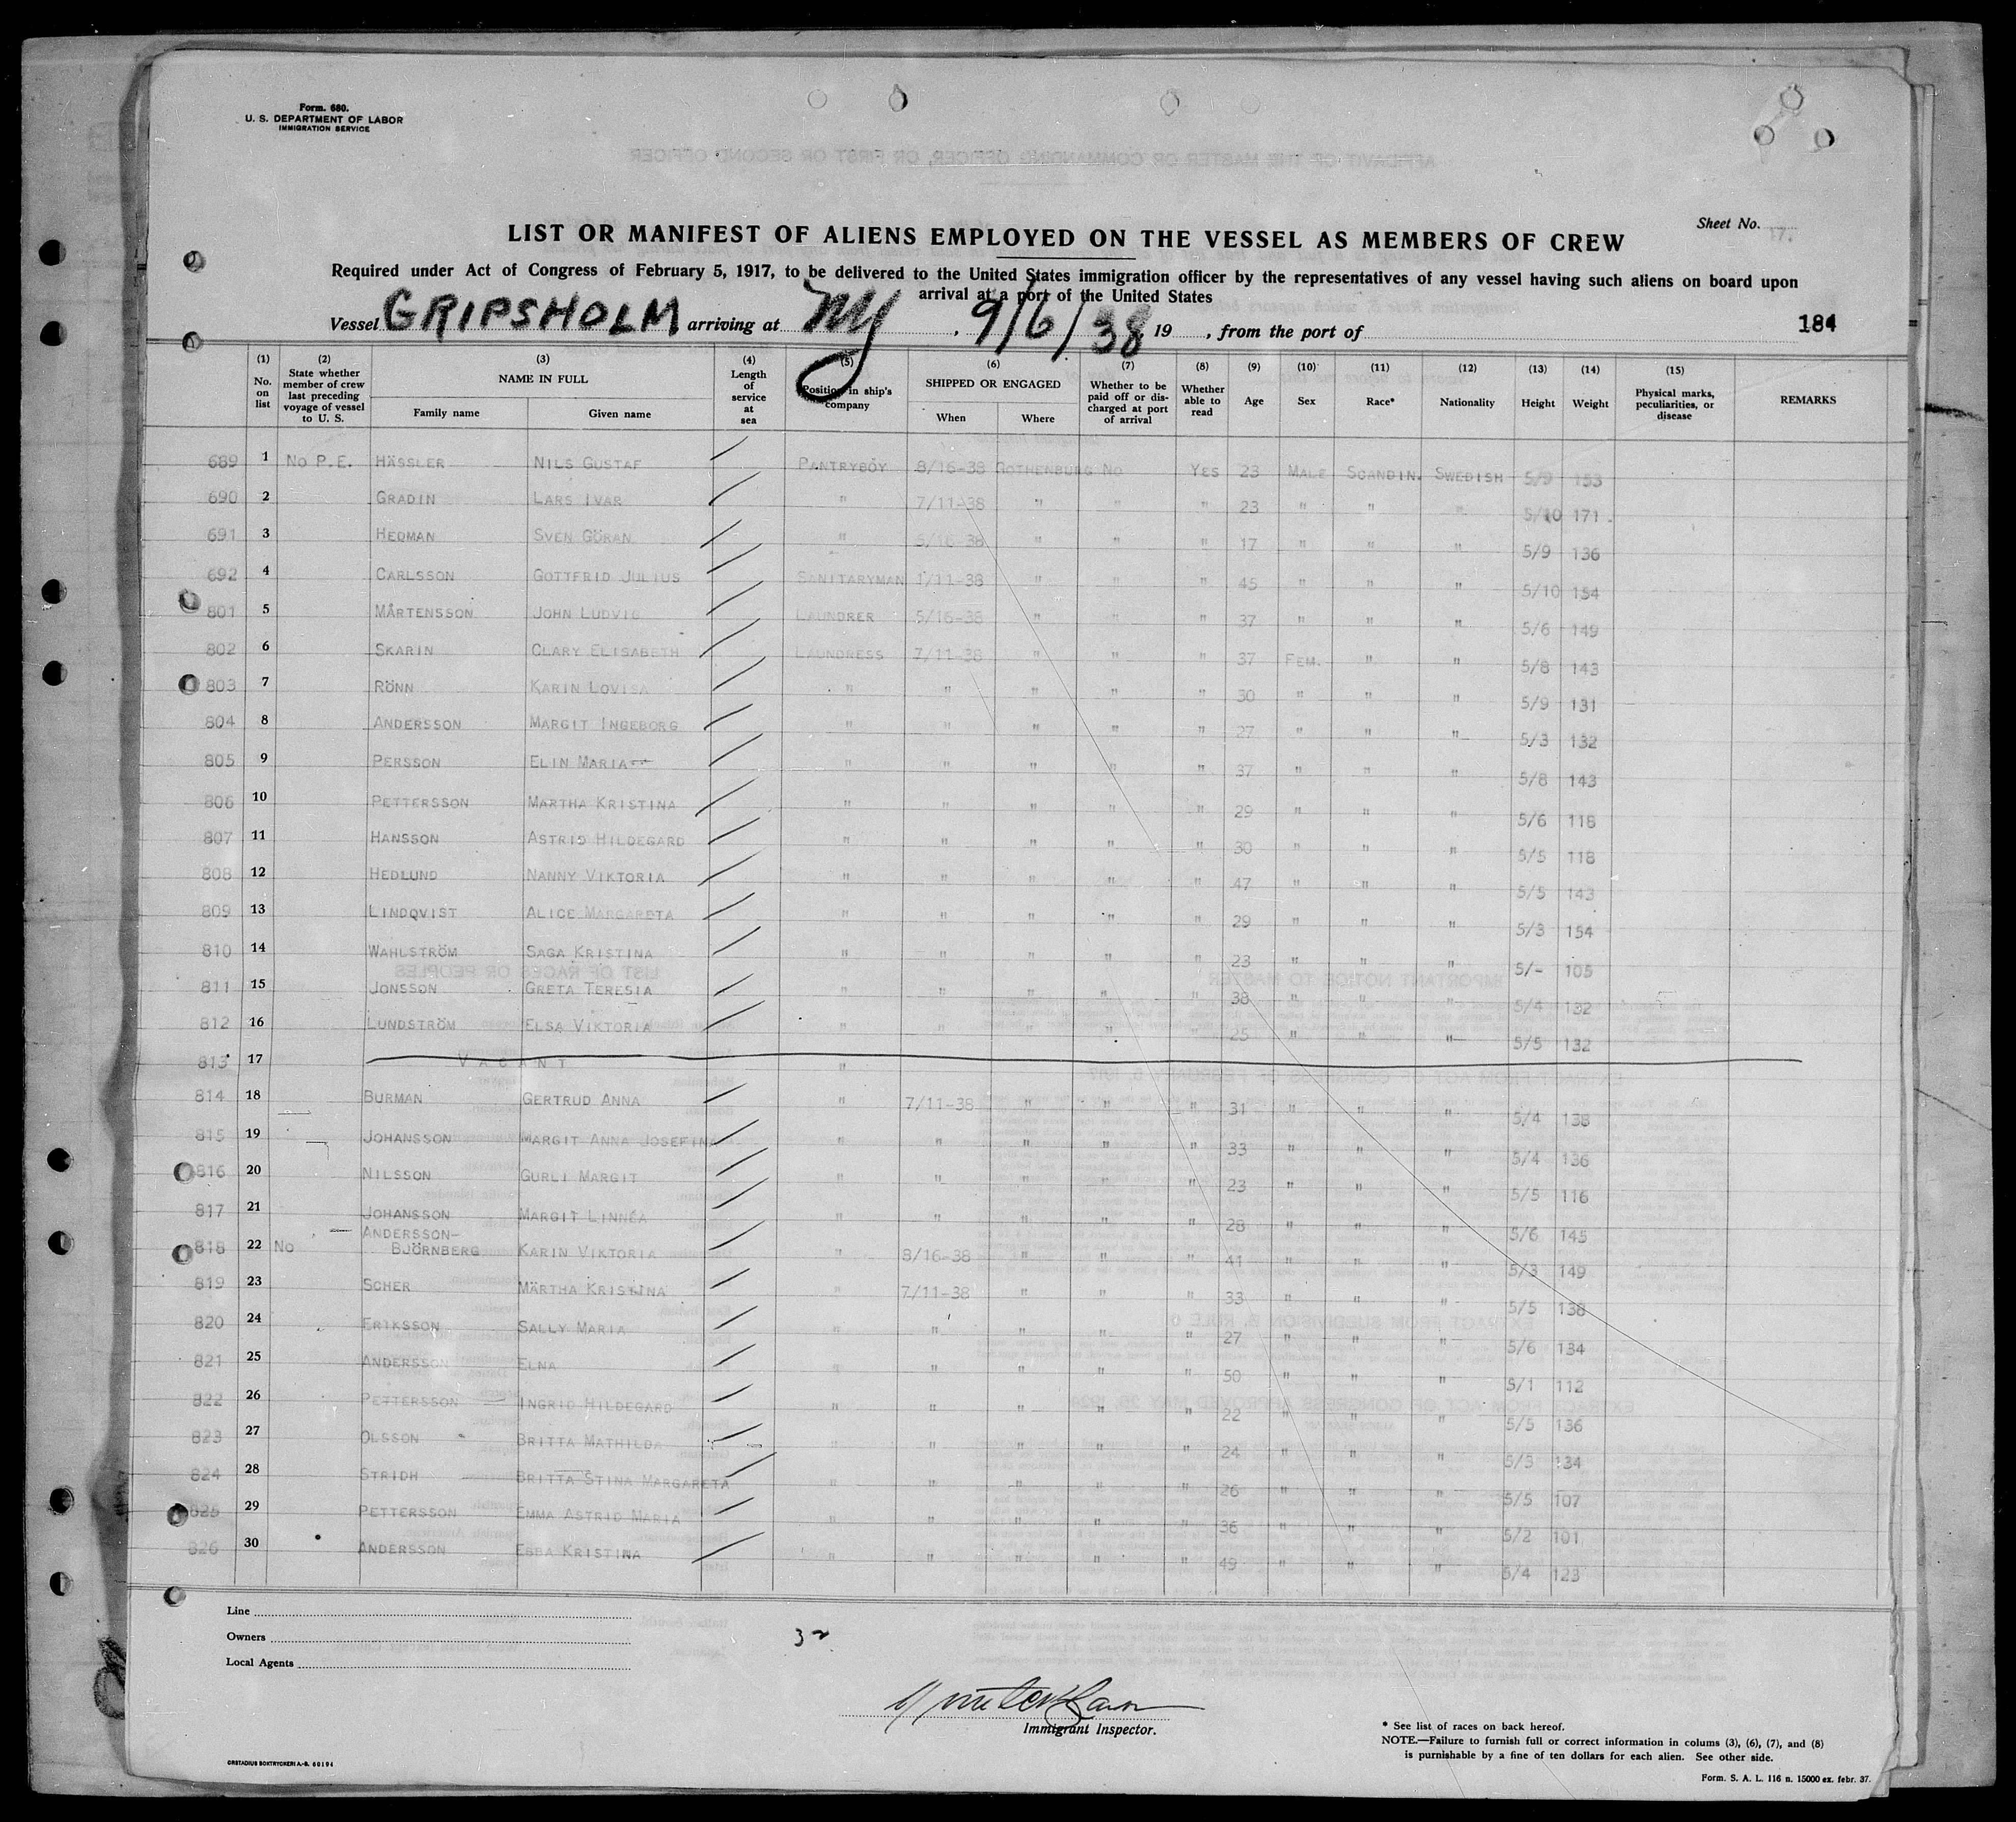 Form. 680.
U. S. DEPARTMENT OF LABOR
IMMIGRATION SERVICE
Sheet No. 17.
LIST OR MANIFEST OF ALIENS EMPLOYED ON THE VESSEL AS MEMBERS OF CREW
Required under Act of Congress of February 5, 1917, to be delivered to the United States immigration officer by the representatives of any vessel having such aliens on board upon
arrival at a port of the United States
Vessel GRIPSHOLM arriving at NY, 9/6/38 19 , from the port of
184
(1) No. on list (2) State whether member of crew last preceding voyage of vessel to U. S. (3) NAME IN FULL Family name Given name (4) Length of service at sea (5) Position in ship's company (6) SHIPPED OR ENGAGED When Where (7) Whether to be paid off or discharged at port of arrival (8) Whether able to read (9) Age (10) Sex (11) Race* (12) Nationality (13) Height (14) Weight (15) Physical marks, peculiarities, or disease REMARKS
689 1 No P.E. HÄSSLER NILS GUSTAF PANTRYBOY 8/16-38 GOTHENBURG No YES 23 MALE SCANDIN. SWEDISH 5/9 153
690 2 GRADIN LARS IVAR " 7/11-38 " " " 23 " " " 5/10 171
691 3 HEDMAN SVEN GÖRAN " 5/16-38 " " " 17 " " " 5/9 136
692 4 CARLSSON GOTTFRID JULIUS SANITARYMAN 1/11-38 " " " 45 " " " 5/10 154
801 5 MÅRTENSSON JOHN LUDVIG LAUNDRER 5/16-38 " " " 37 " " " 5/6 149
802 6 SKARIN CLARY ELISABETH LAUNDRESS 7/11-38 " " " 37 FEM. " " 5/8 143
803 7 RÖNN KARIN LOVISA " " " " " 30 " " " 5/9 131
804 8 ANDERSSON MARGIT INGEBORG " " " " " 27 " " " 5/3 132
805 9 PERSSON ELIN MARIA " " " " " 37 " " " 5/8 143
806 10 PETTERSSON MARTHA KRISTINA " " " " " 29 " " " 5/6 118
807 11 HANSSON ASTRID HILDEGARD " " " " " 30 " " " 5/5 118
808 12 HEDLUND NANNY VIKTORIA " " " " " 47 " " " 5/5 143
809 13 LINDQVIST ALICE MARGARETA " " " " " 29 " " " 5/3 154
810 14 WAHLSTRÖM SAGA KRISTINA " " " " " 23 " " " 5/- 105
811 15 JONSSON GRETA TERESIA " " " " " 38 " " " 5/4 132
812 16 LUNDSTRÖM ELSA VIKTORIA " " " " " 25 " " " 5/5 132
813 17 VACANT "
814 18 BURMAN GERTRUD ANNA " 7/11-38 " " " 31 " " " 5/4 138
815 19 JOHANSSON MARGIT ANNA JOSEFINA " " " " " 33 " " " 5/4 136
816 20 NILSSON GURLI MARGIT " " " " " 23 " " " 5/5 116
817 21 JOHANSSON MARGIT LINNÉA " " " " " 28 " " " 5/6 145
ANDERSSON-
818 22 No BJÖRNBERG KARIN VIKTORIA " 8/16-38 " " " 41 " " " 5/3 149
819 23 SCHER MÄRTHA KRISTINA " 7/11-38 " " " 33 " " " 5/5 138
820 24 ERIKSSON SALLY MARIA " " " " " 27 " " " 5/6 134
821 25 ANDERSSON ELNA " " " " " 50 " " " 5/1 112
822 26 PETTERSSON INGRID HILDEGARD " " " " " 22 " " " 5/5 136
823 27 OLSSON BRITTA MATHILDA " " " " " 24 " " " 5/5 134
824 28 STRIDH BRITTA STINA MARGARETA " " " " " 26 " " " 5/5 107
825 29 PETTERSSON EMMA ASTRID MARIA " " " " " 36 " " " 5/2 101
826 30 ANDERSSON EBBA KRISTINA " " " " " 49 " " " 5/4 123
Line
Owners
Local Agents
32
Immigrant Inspector.
* See list of races on back hereof.
NOTE.—Failure to furnish full or correct information in colums (3), (6), (7), and (8)
is purnishable by a fine of ten dollars for each alien. See other side.
ORSTADIUS BOKTRYCKERI A.-B. 60194
Form. S. A. L. 116 n. 15000 ex. febr. 37.